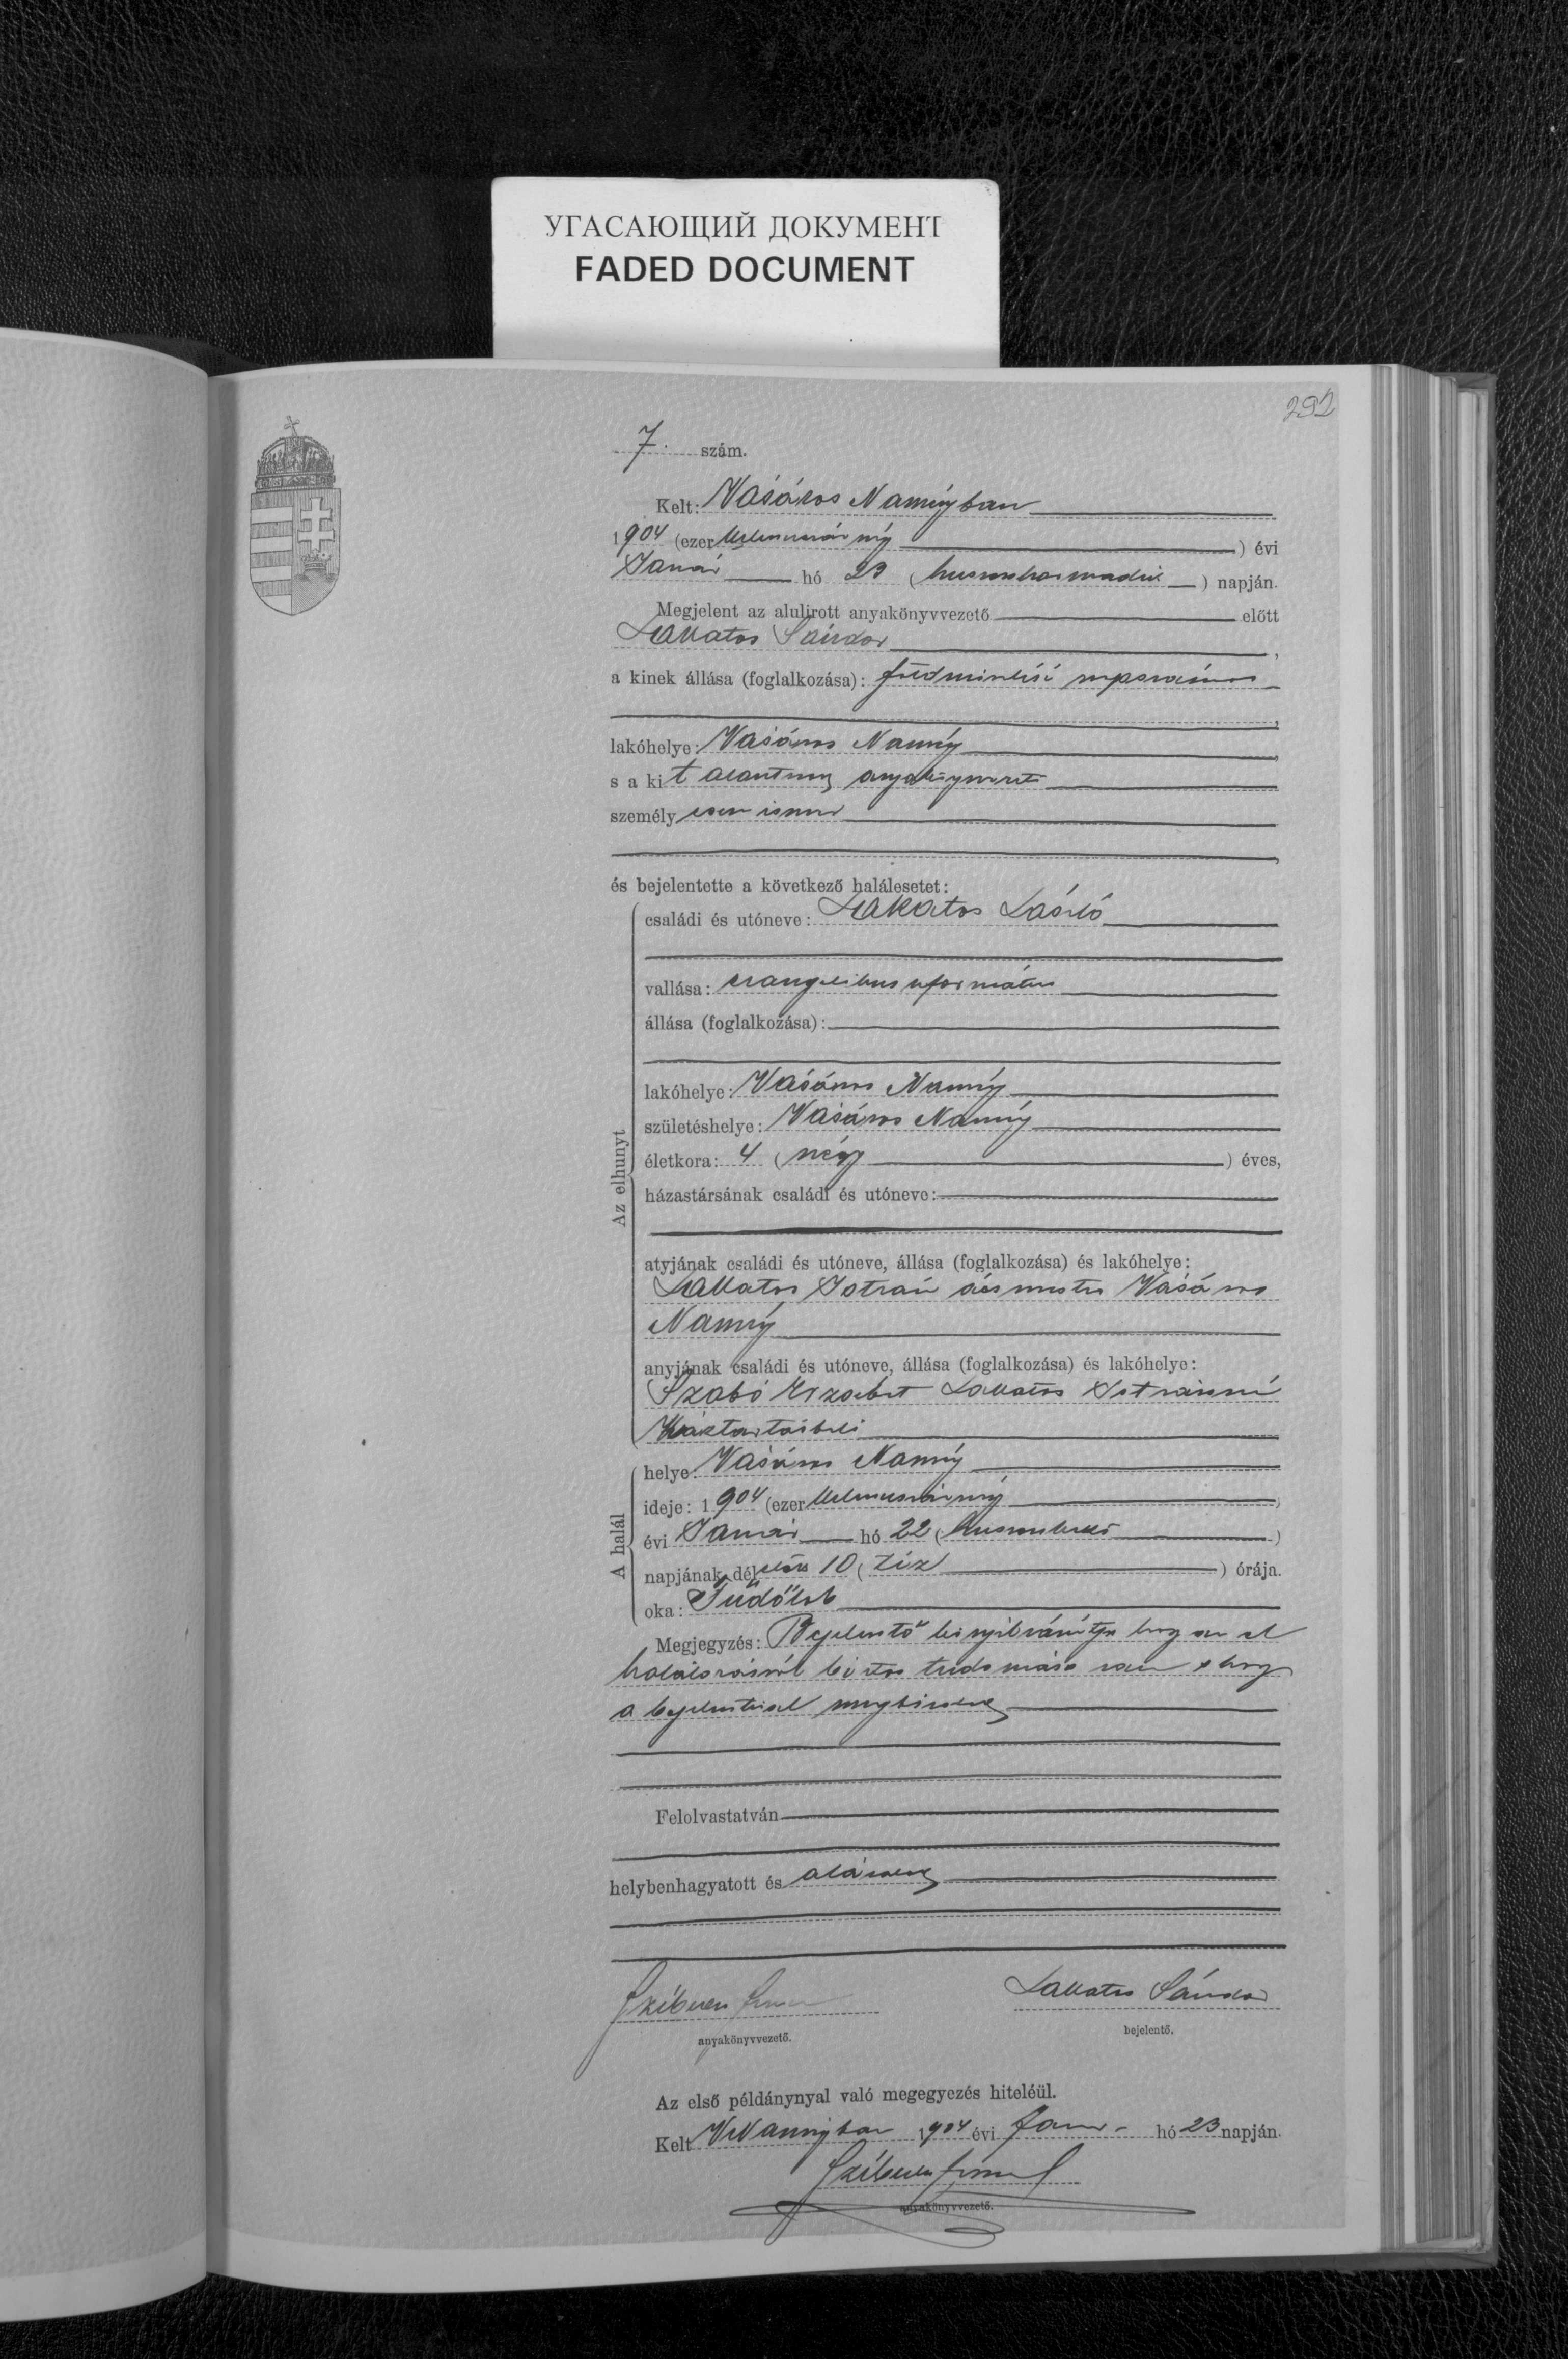 УГАСАЮЩИЙ ДОКУМЕНТ
FADED DOCUMENT
292
7. szám.
Kelt: Vásáros Naményban
1904 (ezerkilencszáznégy) évi
Január hó 23 (huszonharmadik) napján.
Megjelent az alulirott anyakönyvvezető előtt
Lakatos Sándor,
a kinek állása (foglalkozása): földmívelési napszámos,
lakóhelye: Vásáros Namény,
s a kit alantirott anyakönyvvezető
személyesen ismer,
és bejelentette a következő halálesetet:
Az elhunyt
családi és utóneve: Lakatos László
vallása: evangelikus református
állása (foglalkozása):
lakóhelye: Vásáros Namény
születéshelye: Vásáros Namény
életkora: 4 (négy) éves,
házastársának családi és utóneve:
atyjának családi és utóneve, állása (foglalkozása) és lakóhelye:
Lakatos István ács mester Vásáros
Namény
anyjának családi és utóneve, állása (foglalkozása) és lakóhelye:
Szabó Erzsébet Lakatos Istvánné
Háztartásbeli
A halál
helye: Vásáros Namény
ideje: 1904 (ezerkilencszáznégy)
évi Január hó 22 (huszonkettő)
napjának délelőtt 10 (tíz) órája.
oka: Tüdőlob
Megjegyzés: Bejelentő kinyilvánítja hogy az el
halálozásról biztos tudomása van s hogy
a bejelentéssel megbízatott
Felolvastatván
helybenhagyatott és aláíratott
Lakatos Sándor
anyakönyvvezető.
bejelentő.
Az első példánynyal való megegyezés hiteléül.
Kelt VNaményban 1904 évi Jan. hó 23 napján.
anyakönyvvezető.